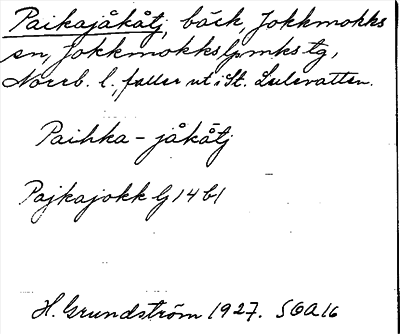 Paikajåkåtj, bäck, Jokkmokks
sn, Jokkmokks lpmks tg,
Norrb. l., faller ut i St. Lulevatten.
Paihka-jåkåtj
Pajkajokk Lj 14 b1
H. Grundström 1927. SOA 16